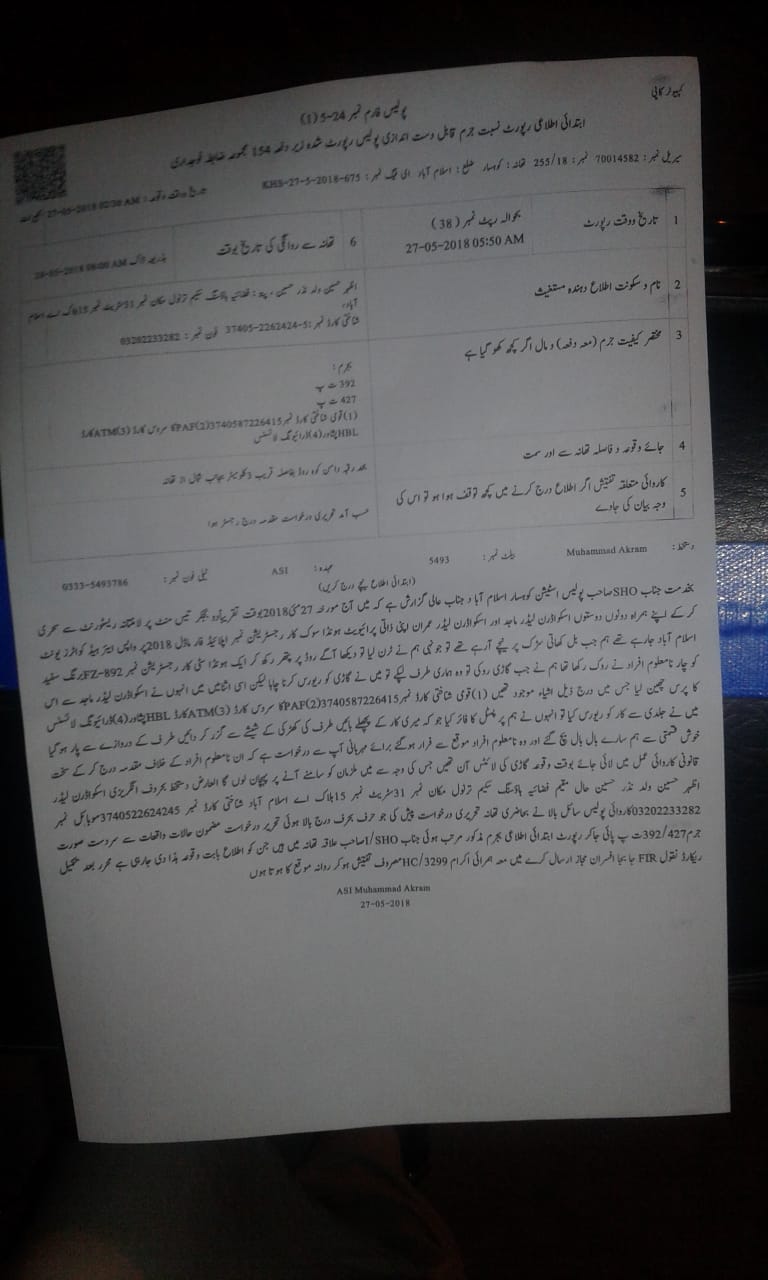 کمپیوٹر کاپی
پولیس فارم نمبر 24-5 (1)
ابتدائی اطلاعی رپورٹ نسبت جرم قابل دست اندازی پولیس رپورٹ شدہ زیر دفعہ 154 مجموعہ ضابطہ فوجداری
سیریل نمبر : 70014582 نمبر : 255/18 تھانہ : کوہسار ضلع : اسلام آباد ای ٹیگ نمبر : KHS-27-5-2018-675 تاریخ ووقت وقوعہ : 27-05-2018 02:30 AM
1 تاریخ ووقت رپورٹ بحوالہ رپٹ نمبر ( 38 ) 27-05-2018 05:50 AM 6 تھانہ سے روانگی کی تاریخ ووقت بذریعہ ڈاک 28-05-2018 08:00 AM
2 نام و سکونت اطلاع دهنده مستغیث
اظہر حسین ولد نذر حسین ، پتہ : فضائیہ ہاؤسنگ سکیم ترنول مکان نمبر 31سٹریٹ نمبر 15بلاک اے اسلام
آباد،
شناختی کارڈ نمبر :5-2262424-37405 فون نمبر : 03202233282
3 مختصر کیفیت جرم (معہ دفعہ) و مال اگر کچھ کھو گیا ہے
بجرم :
392 ت پ
427 ت پ
(1)قومی شناختی کارڈ نمبر3740587226415(2)PAFکا سروس کارڈ (3)ATMکارڈ
HBLپشاور(4)ڈرائیونگ لائسنس
4 جائے وقوعہ و فاصلہ تھانہ سے اور سمت
حد رقبہ دامن کوہ روڈ بفاصلہ قریب 3کلومیٹر بجانب شمال از تھانہ
5 کاروائی متعلقہ تفتیش اگر اطلاع درج کرنے میں کچھ توقف ہوا ہو تو اس کی
وجہ بیان کی جاوے
حسب آمد تحریری درخواست مقدمہ درج رجسٹر ہوا
دستخط : Muhammad Akram بیلٹ نمبر : 5493 عہدہ : ASI ٹیلی فون نمبر : 0333-5493786
(ابتدائی اطلاع نیچے درج کریں)
بخدمت جناب SHOصاحب پولیس اسٹیشن کوہسار اسلام آباد جناب عالی گزارش ہے کہ میں آج مورخہ 27مئی2018بوقت تقریباًدو بجکر تیس منٹ پر لامنتانہ ریسٹورنٹ سے سحری
کر کے اپنے ہمراہ دونوں دوستوں اسکواڈرن لیڈر ماجد اور اسکواڈرن لیڈر عمران اپنی ذاتی پرائیویٹ ہونڈا سوک کار رجسٹریشن نمبر اپلائیڈ فار ماڈل 2018پر واپس ایئر ہیڈ کوارٹرز یونٹ
اسلام آباد جارہے تھے ہم جب بل کھاتی سڑک پر نیچے آرہے تھے تو جونہی ہم نے ٹرن لیا تو دیکھا آگے روڈ پر پتھر رکھ کر ایک ہونڈا سٹی کار رجسٹریشن نمبر FZ-892برنگ سفید
کو چار نامعلوم افراد نے روک رکھا تھا ہم نے جب گاڑی روکی تو وہ ہماری طرف لپکے تو میں نے گاڑی کو ریورس کرنا چاہا لیکن اسی اثنا میں انہوں نے اسکواڈرن لیڈر ماجد سے اس
کا پرس چھین لیا جس میں درج ذیل اشیاء موجود تھیں (1)قومی شناختی کارڈ نمبر3740587226415(2)PAFکا سروس کارڈ (3)ATMکارڈ HBLپشاور(4)ڈرائیونگ لائسنس
میں نے جلدی سے کار کو ریورس کیا تو انہوں نے ہم پر پسٹل کا فائر کیا جو کہ میری کار کے پچھلے بائیں طرف کی کھڑکی کے شیشے سے گزر کر دائیں طرف کے دروازے سے پار ہوگیا
خوش قسمتی سے ہم سارے بال بال بچ گئے اور وہ نامعلوم افراد موقع سے فرار ہوگئے برائے مہربانی آپ سے درخواست ہے کہ ان نامعلوم افراد کے خلاف مقدمہ درج کر کے سخت
قانونی کاروائی عمل میں لائی جائے بوقت وقوعہ گاڑی کی لائٹس آن تھیں جس کی وجہ سے میں ملزمان کو سامنے آنے پر پہچان لوں گا العارض دستخط بحروف انگریزی اسکواڈرن لیڈر
اظہر حسین ولد نذر حسین حال مقیم فضائیہ ہاؤسنگ سکیم ترنول مکان نمبر 31سٹریٹ نمبر 15بلاک اے اسلام آباد شناختی کارڈ نمبر 3740522624245موبائل نمبر
03202233282کاروائی پولیس سائل بالا نے بحاضری تھانہ تحریری درخواست پیش کی جو حرف بحرف درج بالا ہوئی تحریر درخواست مضمون حالات واقعات سے سردست صورت
جرم392/427ت پ پائی جاکر رپورٹ ابتدائی اطلاعی بجرم مذکور مرتب ہوئی جناب I/SHOصاحب علاقہ تھانہ میں ہیں جن کو اطلاع بابت وقوعہ ہذا دی جارہی ہے محرر بعد تکمیل
ریکارڈ نقول FIR جا بجا افسران مجاز ارسال کرے میں معہ ہمراہی اکرام HC/3299مصروف تفتیش ہوکر روانہ موقع کا ہوتا ہوں
ASI Muhammad Akram
27-05-2018